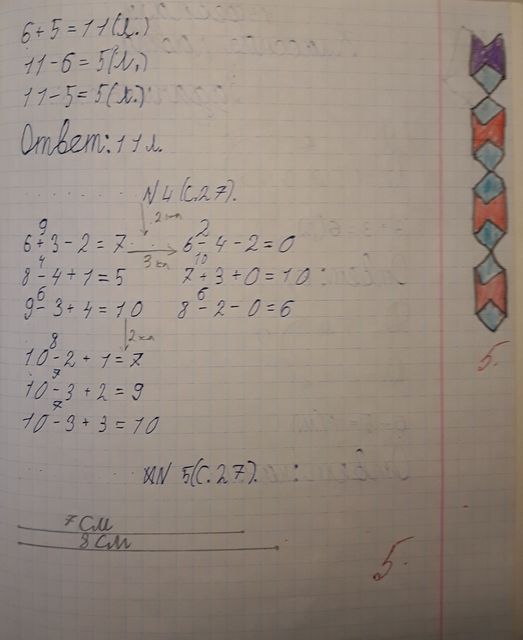 6+5=11(л.)
11-6=5(л.)
11-5=5(л.)
Ответ: 11л.
N4(с.27).
2 кл
9
6+3-2=7
3 кл
2
6-4-2=0
4
8-4+1=5
10
7+3+0=10
6
9-3+4=10
6
8-2-0=6
2 кл
8
10-2+1=7
7
10-3+2=9
7
10-3+3=10
N 5(с.27).
7 см
8 см
5.
5.